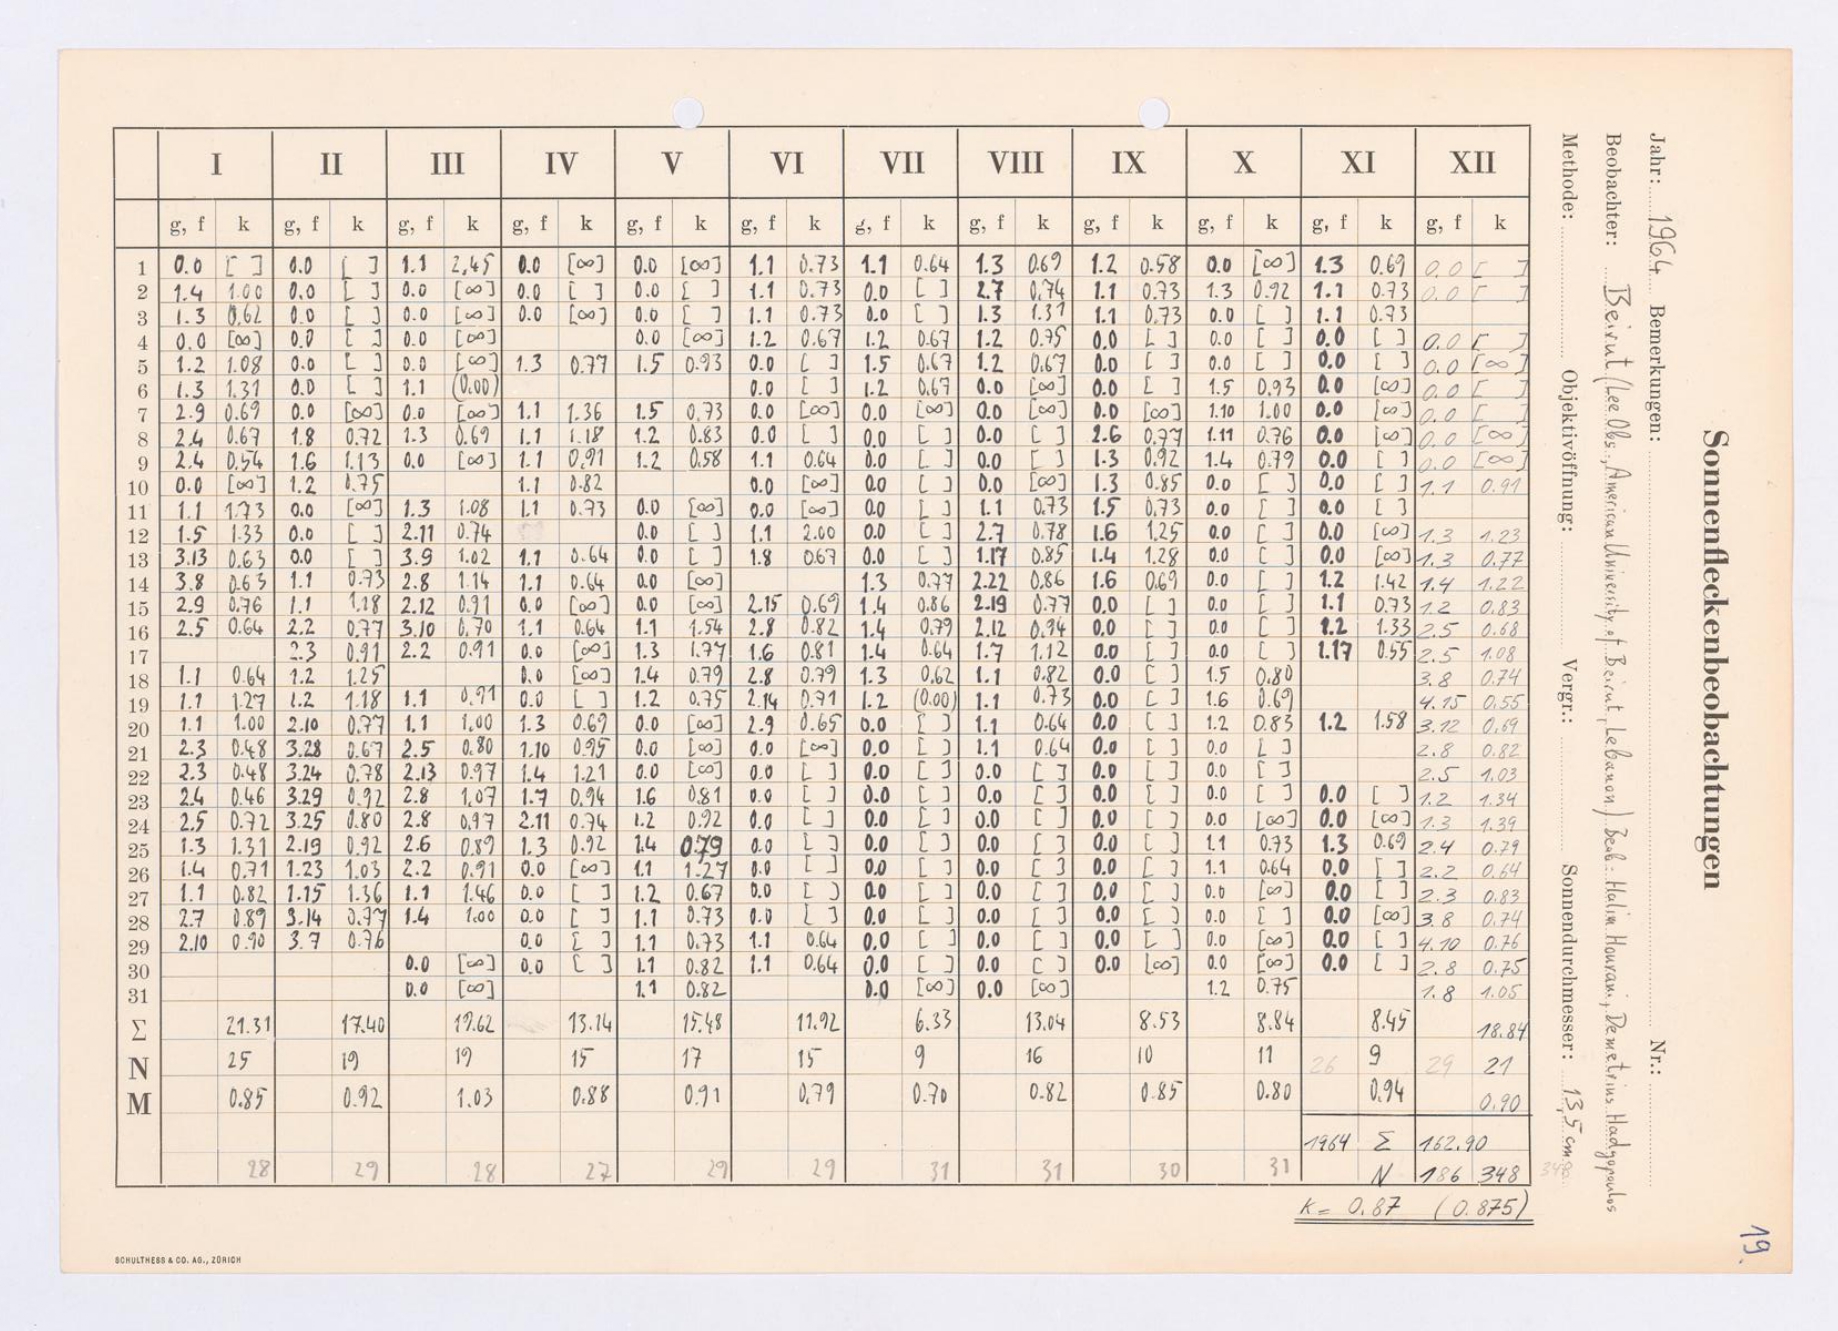 Sonnenfleckenbeobachtungen
Jahr: 1964 Bemerkungen: Nr.:
Beobachter: Beirut (Lee Obs., American University of Beirut, Lebanon) Beob: Halim Hourani, Demetrius Hadgopoulos
Methode: Objektivöffnung: Vergr.: Sonnendurchmesser: 13,5 cm
19.
I II III IV V VI VII VIII IX X XI XII
g, f k g, f k g, f k g, f k g, f k g, f k g, f k g, f k g, f k g, f k g, f k g, f k
1 0.0 [ ] 0.0 [ ] 1.1 2,45 0.0 [∞] 0.0 [∞] 1.1 0.73 1.1 0.64 1.3 0.69 1.2 0.58 0.0 [∞] 1.3 0.69 0.0 [ ]
2 1.4 1.00 0.0 [ ] 0.0 [∞] 0.0 [ ] 0.0 [ ] 1.1 0.73 0.0 [ ] 2.7 0.74 1.1 0.73 1.3 0.92 1.1 0.73 0.0 [ ]
3 1.3 0.62 0.0 [ ] 0.0 [∞] 0.0 [∞] 0.0 [ ] 1.1 0.73 0.0 [ ] 1.3 1.31 1.1 0.73 0.0 [ ] 1.1 0.73
4 0.0 [∞] 0.0 [ ] 0.0 [∞] 0.0 [∞] 1.2 0.67 1.2 0.67 1.2 0.75 0.0 [ ] 0.0 [ ] 0.0 [ ] 0.0 [ ]
5 1.2 1.08 0.0 [ ] 0.0 [∞] 1.3 0.77 1.5 0.93 0.0 [ ] 1.5 0.67 1.2 0.67 0.0 [ ] 0.0 [ ] 0.0 [ ] 0.0 [∞]
6 1.3 1.31 0.0 [ ] 1.1 (0.00) 0.0 [ ] 1.2 0.67 0.0 [∞] 0.0 [ ] 1.5 0.93 0.0 [∞] 0.0 [ ]
7 2.9 0.69 0.0 [∞] 0.0 [∞] 1.1 1.36 1.5 0.73 0.0 [∞] 0.0 [∞] 0.0 [∞] 0.0 [∞] 1.10 1.00 0.0 [∞] 0.0 [ ]
8 2.4 0.67 1.8 0.72 1.3 0.69 1.1 1.18 1.2 0.83 0.0 [ ] 0.0 [ ] 0.0 [ ] 2.6 0.77 1.11 0.76 0.0 [∞] 0.0 [∞]
9 2.4 0.54 1.6 1.13 0.0 [∞] 1.1 0.91 1.2 0.58 1.1 0.64 0.0 [ ] 0.0 [ ] 1.3 0.92 1.4 0.79 0.0 [ ] 0.0 [∞]
10 0.0 [∞] 1.2 0.75 1.1 0.82 0.0 [∞] 0.0 [ ] 0.0 [∞] 1.3 0.85 0.0 [ ] 0.0 [ ] 1.1 0.91
11 1.1 1.73 0.0 [∞] 1.3 1.08 1.1 0.73 0.0 [∞] 0.0 [∞] 0.0 [ ] 1.1 0.73 1.5 0.73 0.0 [ ] 0.0 [ ]
12 1.5 1.33 0.0 [ ] 2.11 0.74 0.0 [ ] 1.1 2.00 0.0 [ ] 2.7 0.78 1.6 1.25 0.0 [ ] 0.0 [∞] 1.3 1.23
13 3.13 0.63 0.0 [ ] 3.9 1.02 1.1 0.64 0.0 [ ] 1.8 0.67 0.0 [ ] 1.17 0.85 1.4 1.28 0.0 [ ] 0.0 [∞] 1.3 0.77
14 3.8 0.63 1.1 0.73 2.8 1.14 1.1 0.64 0.0 [∞] 1.3 0.77 2.22 0.86 1.6 0.69 0.0 [ ] 1.2 1.42 1.4 1.22
15 2.9 0.76 1.1 1.18 2.12 0.91 0.0 [∞] 0.0 [∞] 2.15 0.69 1.4 0.86 2.19 0.77 0.0 [ ] 0.0 [ ] 1.1 0.73 1.2 0.83
16 2.5 0.64 2.2 0.77 3.10 0.70 1.1 0.64 1.1 1.54 2.8 0.82 1.4 0.79 2.12 0.94 0.0 [ ] 0.0 [ ] 1.2 1.33 2.5 0.68
17 2.3 0.91 2.2 0.91 0.0 [∞] 1.3 1.77 1.6 0.81 1.4 0.64 1.7 1.12 0.0 [ ] 0.0 [ ] 1.17 0.55 2.5 1.08
18 1.1 0.64 1.2 1.25 0.0 [∞] 1.4 0.79 2.8 0.79 1.3 0.62 1.1 0.82 0.0 [ ] 1.5 0.80 3.8 0.74
19 1.1 1.27 1.2 1.18 1.1 0.91 0.0 [ ] 1.2 0.75 2.14 0.71 1.2 (0.00) 1.1 0.73 0.0 [ ] 1.6 0.69 4.15 0.55
20 1.1 1.00 2.10 0.77 1.1 1.00 1.3 0.69 0.0 [∞] 2.9 0.65 0.0 [ ] 1.1 0.64 0.0 [ ] 1.2 0.83 1.2 1.58 3.12 0.69
21 2.3 0.48 3.28 0.67 2.5 0.80 1.10 0.95 0.0 [∞] 0.0 [∞] 0.0 [ ] 1.1 0.64 0.0 [ ] 0.0 [ ] 2.8 0.82
22 2.3 0.48 3.24 0.78 2.13 0.97 1.4 1.21 0.0 [∞] 0.0 [ ] 0.0 [ ] 0.0 [ ] 0.0 [ ] 0.0 [ ] 2.5 1.03
23 2.4 0.46 3.29 0.92 2.8 1.07 1.7 0.94 1.6 0.81 0.0 [ ] 0.0 [ ] 0.0 [ ] 0.0 [ ] 0.0 [ ] 0.0 [ ] 1.2 1.34
24 2.5 0.72 3.25 0.80 2.8 0.97 2.11 0.74 1.2 0.92 0.0 [ ] 0.0 [ ] 0.0 [ ] 0.0 [ ] 0.0 [∞] 0.0 [∞] 1.3 1.39
25 1.3 1.31 2.19 0.92 2.6 0.89 1.3 0.92 1.4 0.79 0.0 [ ] 0.0 [ ] 0.0 [ ] 0.0 [ ] 1.1 0.73 1.3 0.69 2.4 0.79
26 1.4 0.71 1.23 1.03 2.2 0.91 0.0 [∞] 1.1 1.27 0.0 [ ] 0.0 [ ] 0.0 [ ] 0.0 [ ] 1.1 0.64 0.0 [ ] 2.2 0.64
27 1.1 0.82 1.15 1.36 1.1 1.46 0.0 [ ] 1.2 0.67 0.0 [ ] 0.0 [ ] 0.0 [ ] 0.0 [ ] 0.0 [∞] 0.0 [ ] 2.3 0.83
28 2.7 0.89 3.14 0.77 1.4 1.00 0.0 [ ] 1.1 0.73 0.0 [ ] 0.0 [ ] 0.0 [ ] 0.0 [ ] 0.0 [ ] 0.0 [∞] 3.8 0.74
29 2.10 0.90 3.7 0.76 0.0 [ ] 1.1 0.73 1.1 0.64 0.0 [ ] 0.0 [ ] 0.0 [ ] 0.0 [∞] 0.0 [ ] 4.10 0.76
30 0.0 [∞] 0.0 [ ] 1.1 0.82 1.1 0.64 0.0 [ ] 0.0 [ ] 0.0 [∞] 0.0 [∞] 0.0 [ ] 2.8 0.75
31 0.0 [∞] 1.1 0.82 0.0 [∞] 0.0 [∞] 1.2 0.75 1.8 1.05
Σ 21.31 17.40 19.62 13.14 15.48 11.92 6.33 13.04 8.53 8.84 8.45 18.84
N 25 19 19 15 17 15 9 16 10 11 26 9 29 21
M 0.85 0.92 1.03 0.88 0.91 0.79 0.70 0.82 0.85 0.80 0.94 0.90
1964 Σ 162.90
28 29 28 27 29 29 31 31 30 31 N 186 348 348
k = 0.87 (0.875)
SCHULTHESS & CO. AG., ZÜRICH